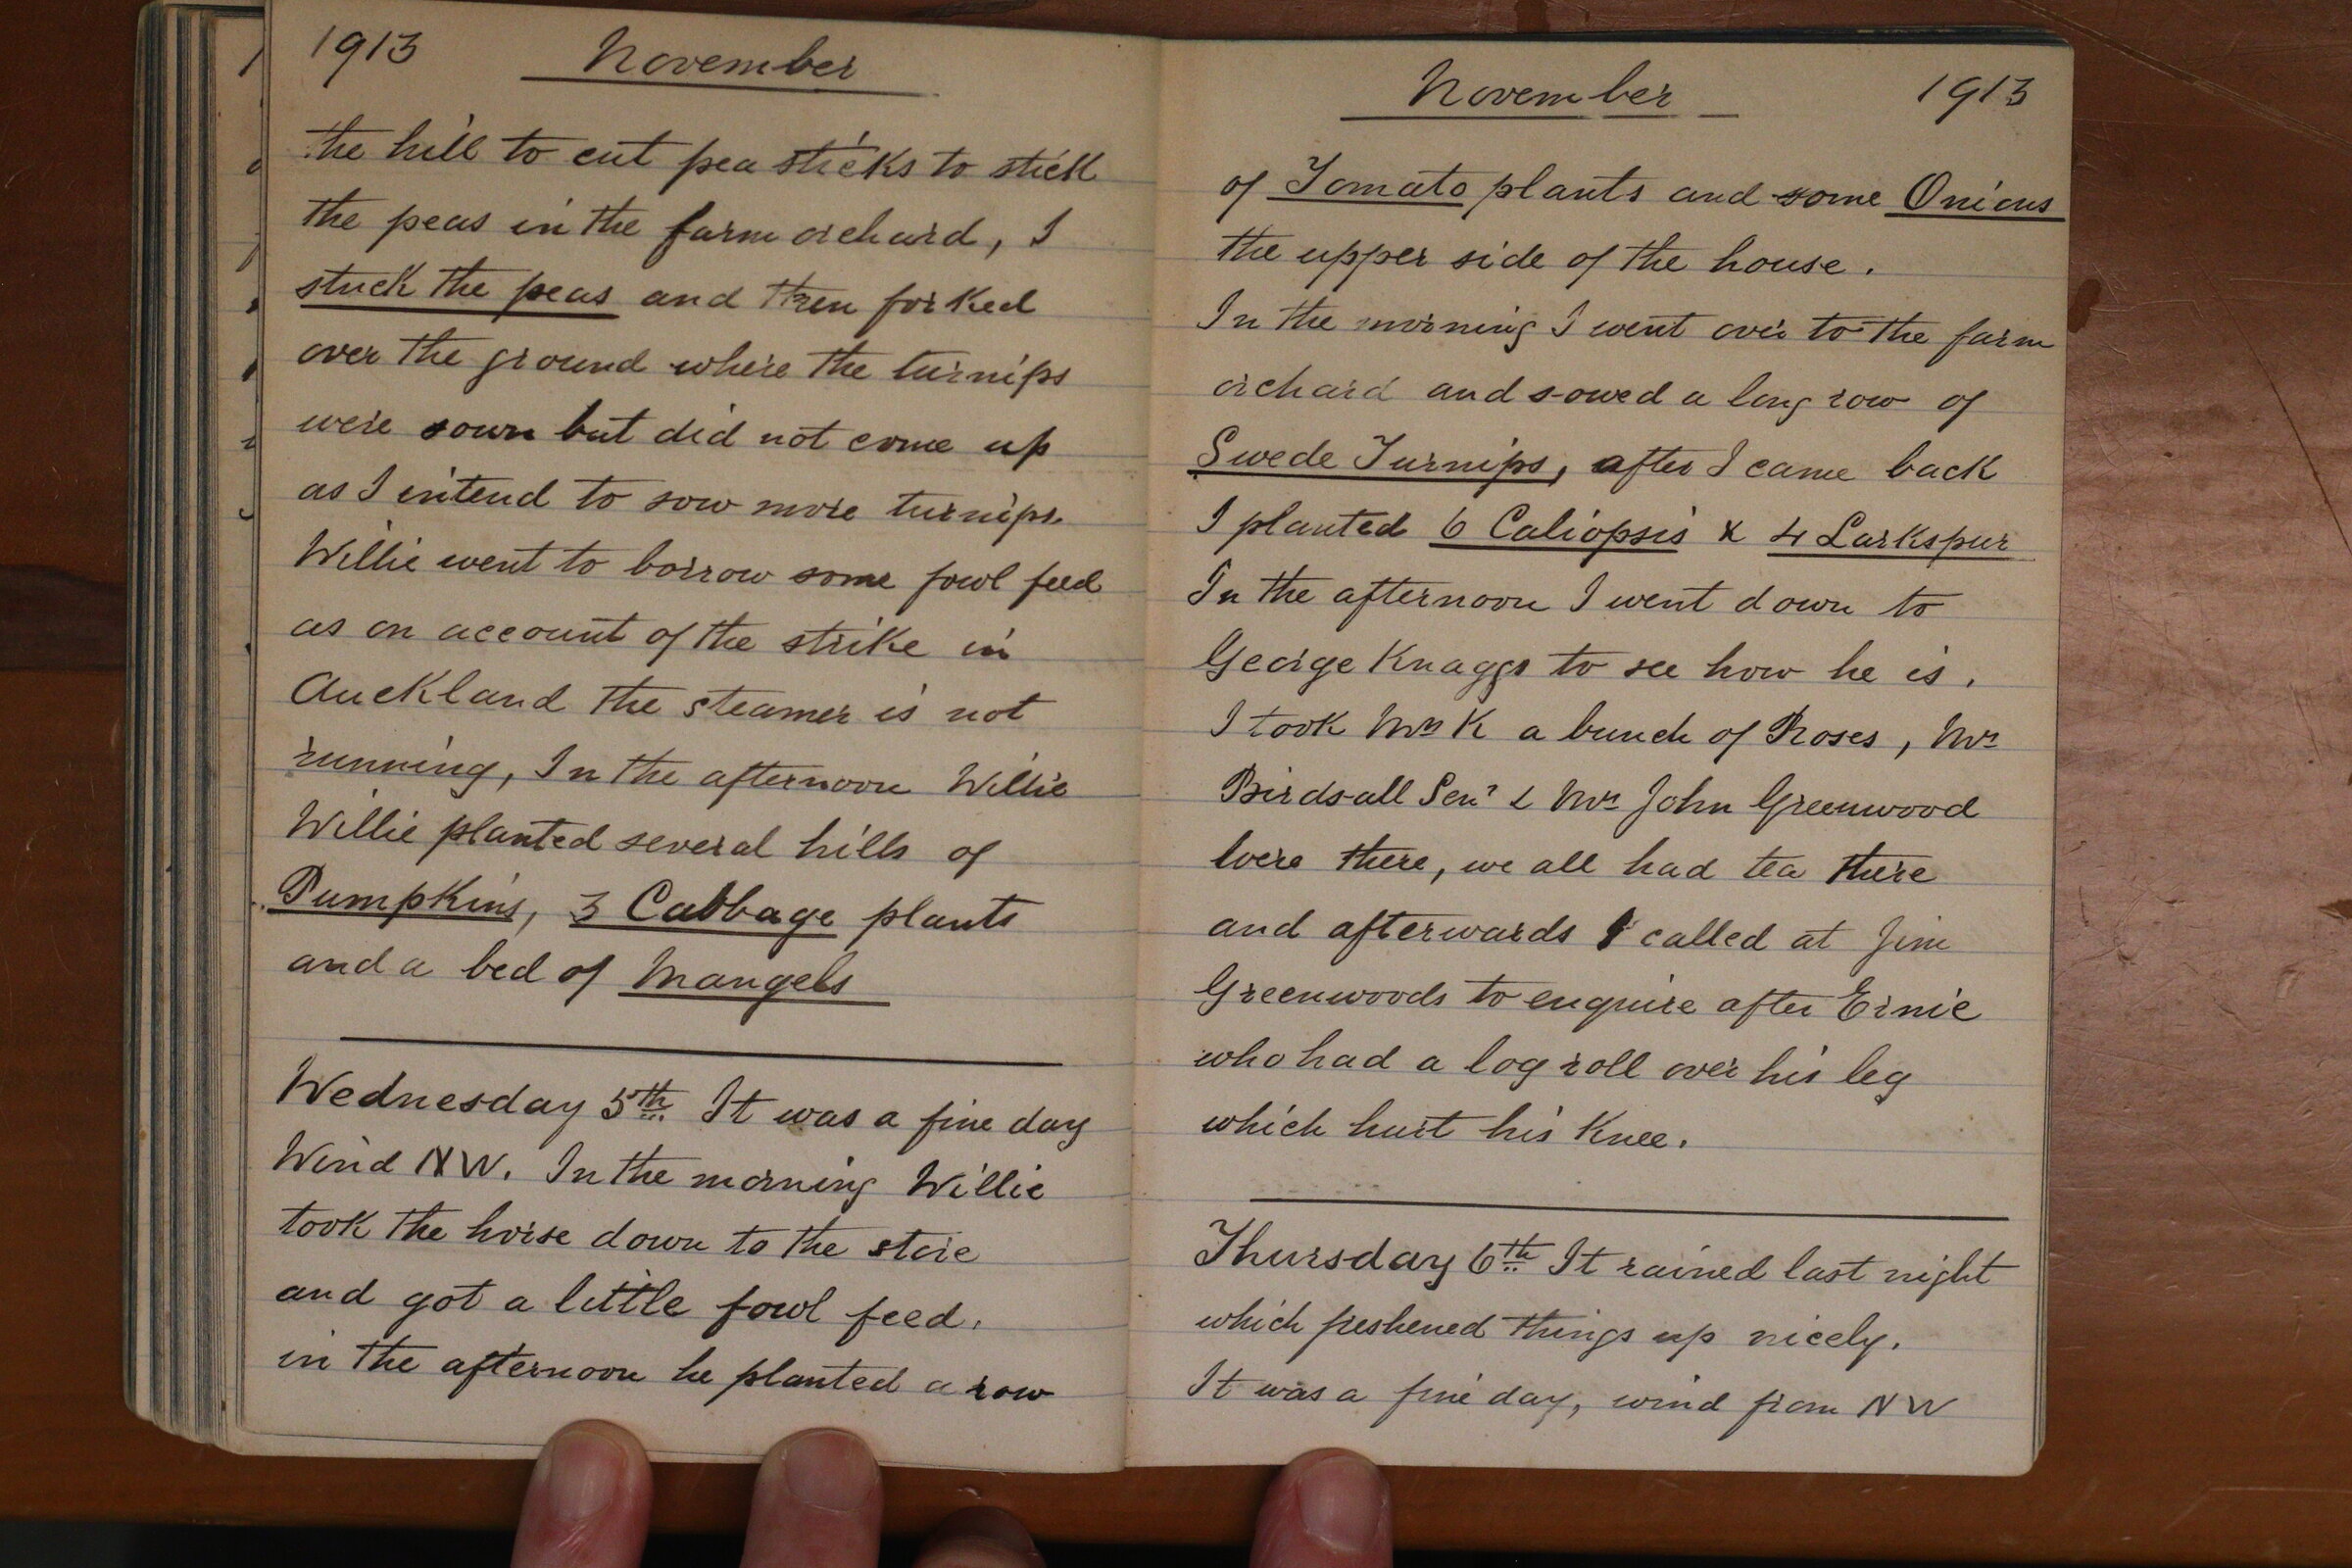 1913 November
the hill to cut pea sticks to stick
the peas in the farm orchard, I
stuck the peas and then forked
over the ground where the turnips
were sown but did not come up
as I intend to sow more turnips.
Willie went to borrow some fowl feed
as on account of the strike in
Auckland the steamer is not
running, In the afternoon Willie
Willie planted several hills of
Pumpkins, 3 Cabbage plants
and a bed of Mangels
Wednesday 5th It was a fine day
Wind NW. In the morning Willie
took the horse down to the store
and got a little fowl feed.
in the afternoon he planted a row
November 1913
of Tomato plants and some Onions
the upper side of the house.
In the morning I went over to the farm
orchard and sowed a long row of
Swede Turnips, after I came back
I planted 6 Caliopsis & 4 Larkspur
In the afternoon I went down to
George Knaggs to see how he is.
I took Mrs K a bunch of Roses, Mrs
Birdsall Senr & Mrs John Greenwood
were there, we all had tea there
and afterwards I called at Jim
Greenwoods to enquire after Ernie
who had a log roll over his leg
which hurt his Knee.
Thursday 6th It rained last night
which freshened things up nicely.
It was a fine day, wind from NW